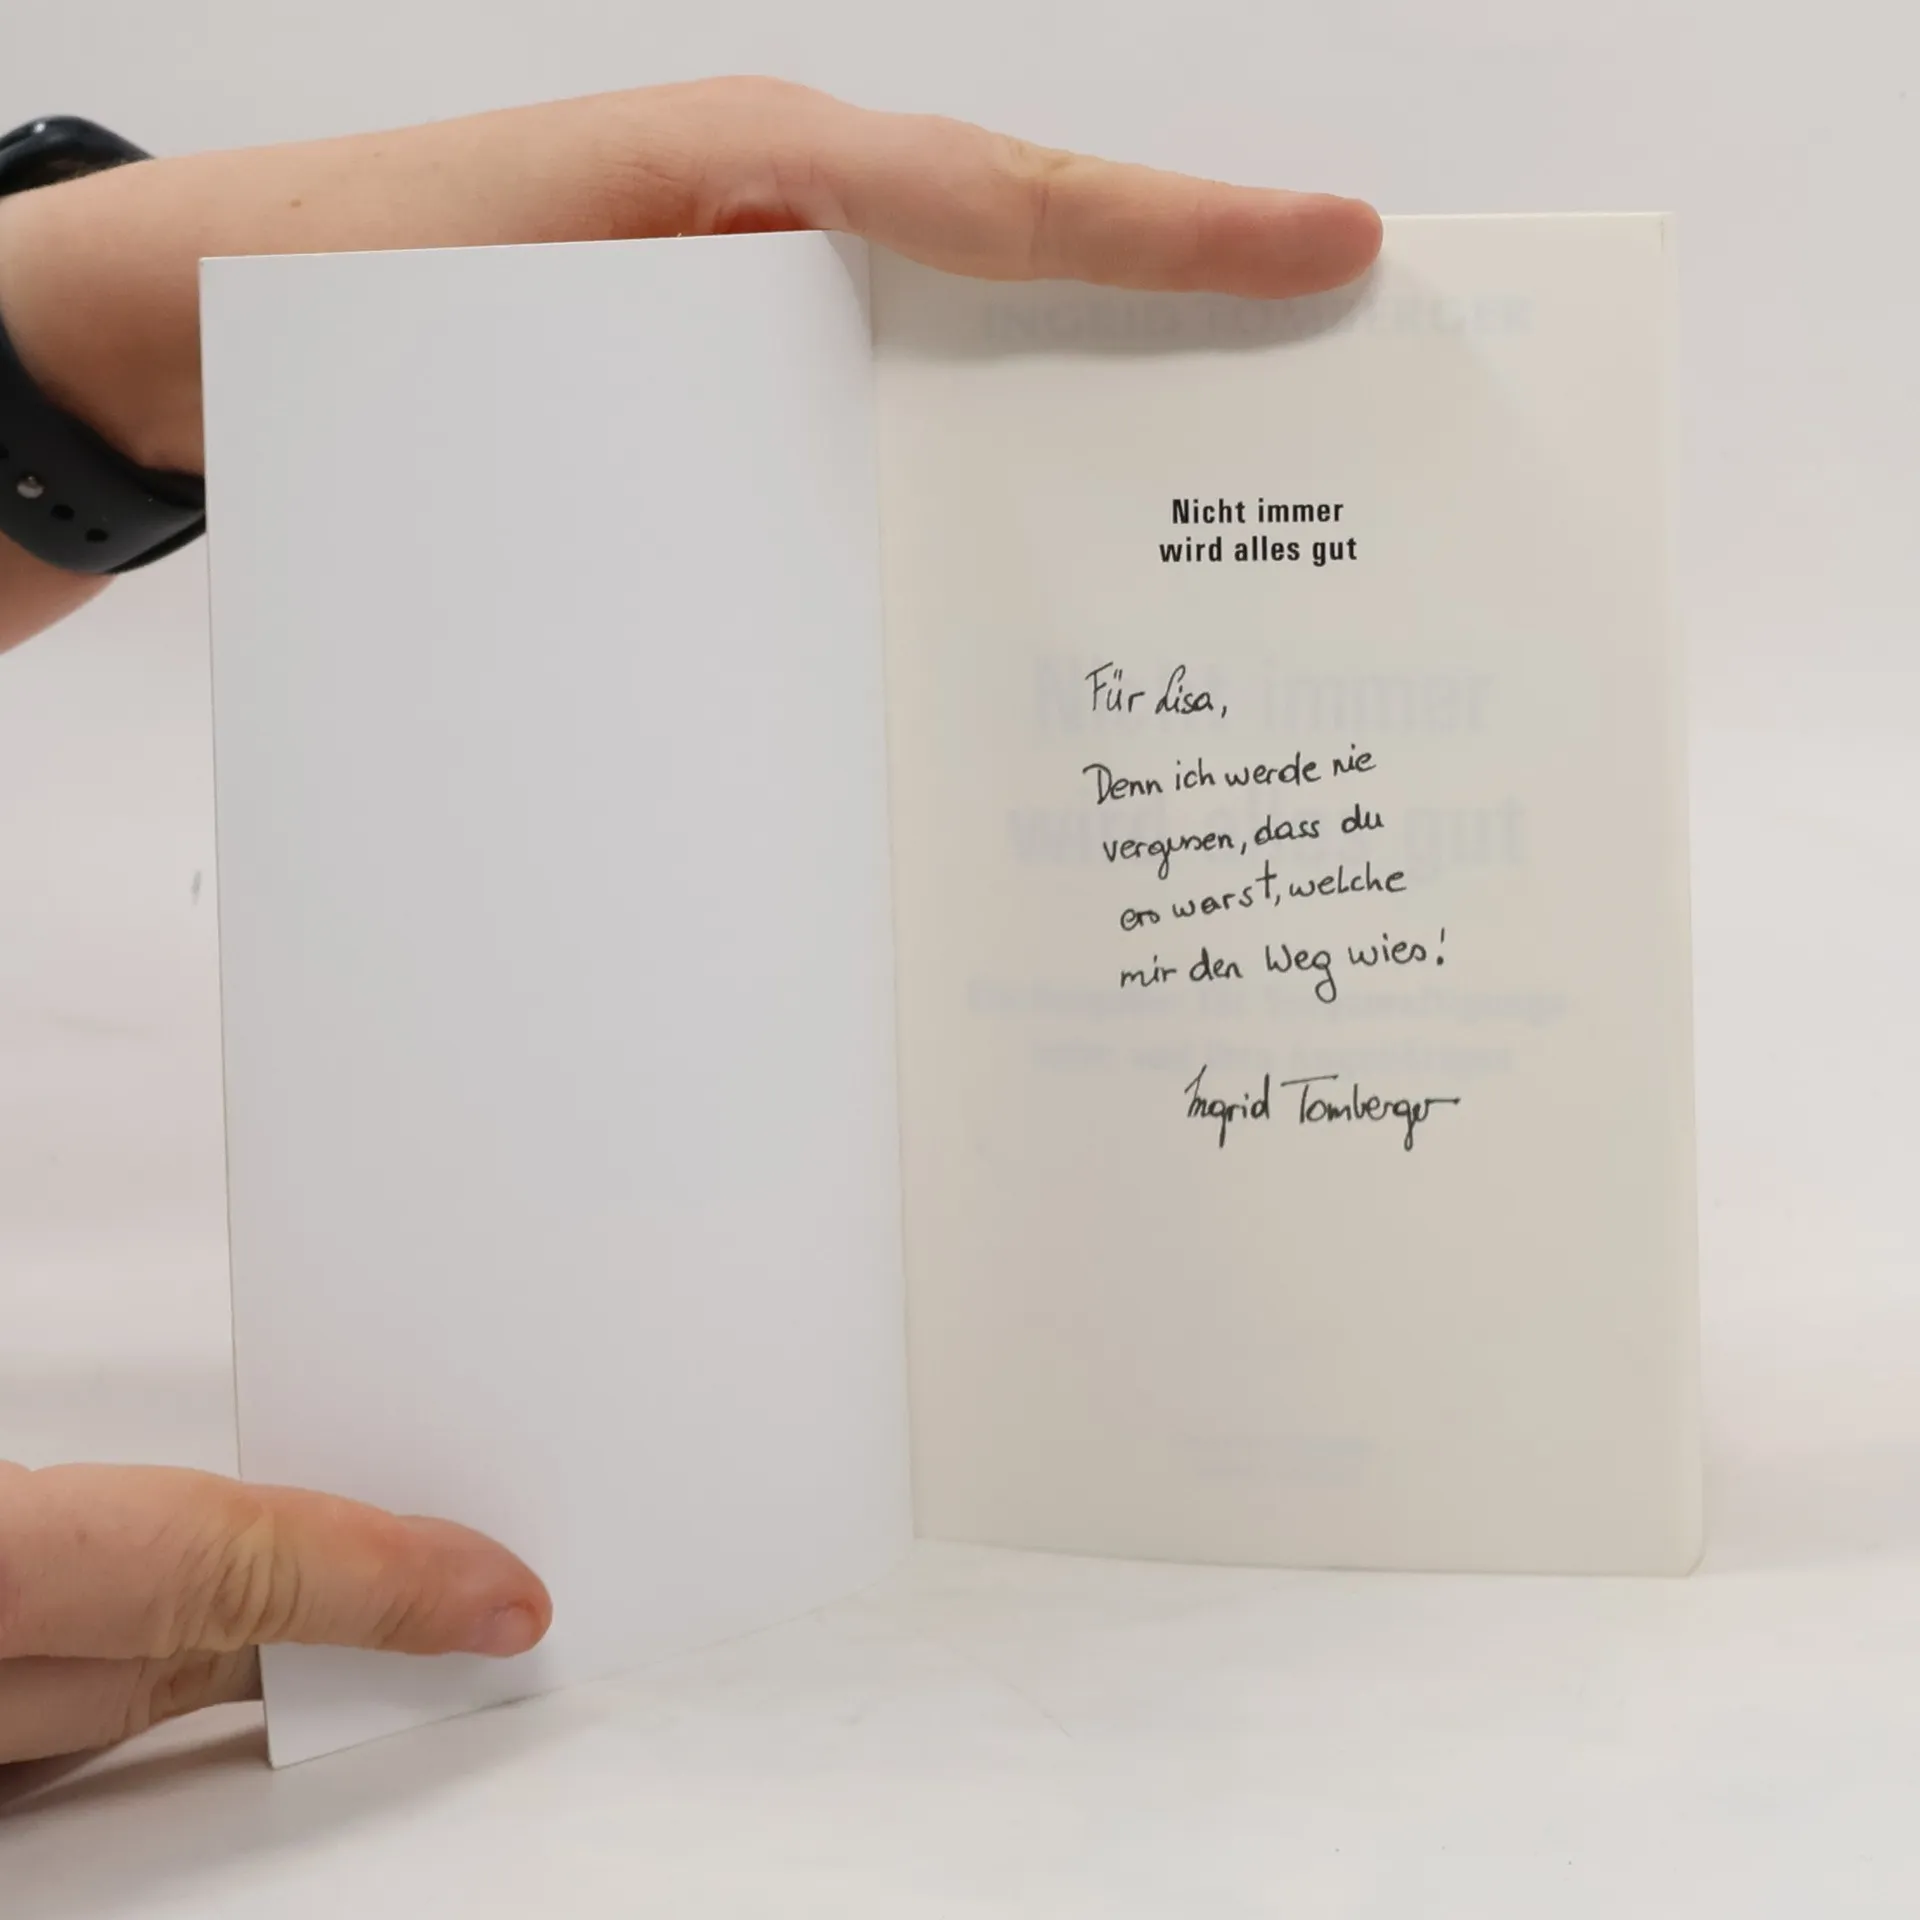 INGRID TOMBERGER
Nicht immer
wird alles gut
Für Lisa,
Denn ich werde nie
vergessen, dass du
es warst, welche
mir den Weg wies!
Ingrid Tomberger